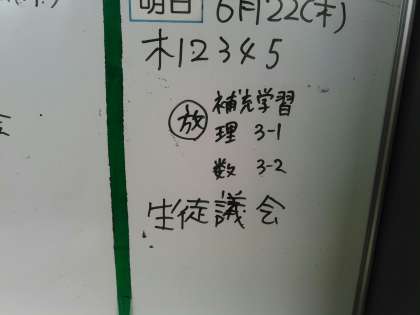 明日 6月22(木)
木12345
放 補充学習
理 3-1
数 3-2
生徒議会